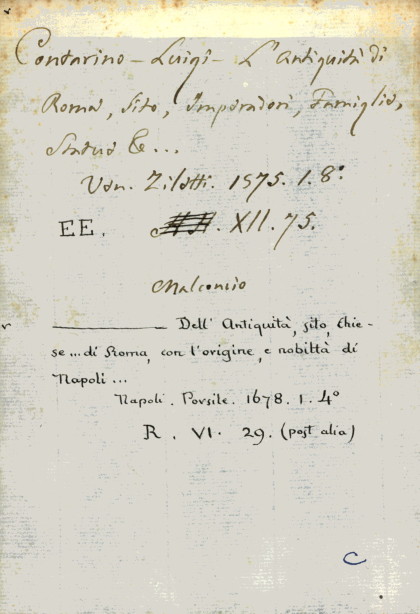 Contarino - Luigi - L'Antiquità di
Roma, Sito, Imperadori, Famiglie,
Statue &...
Ven. Ziletti. 1575. 1. 8º
EE. XII. 75.
Malconcio
Dell' Antiquità, sito, Chie-
se... di Roma, con l'origine, e nobiltà di
Napoli...
Napoli. Porsile. 1678. 1. 4º
R. VI. 29. (post alia)
C